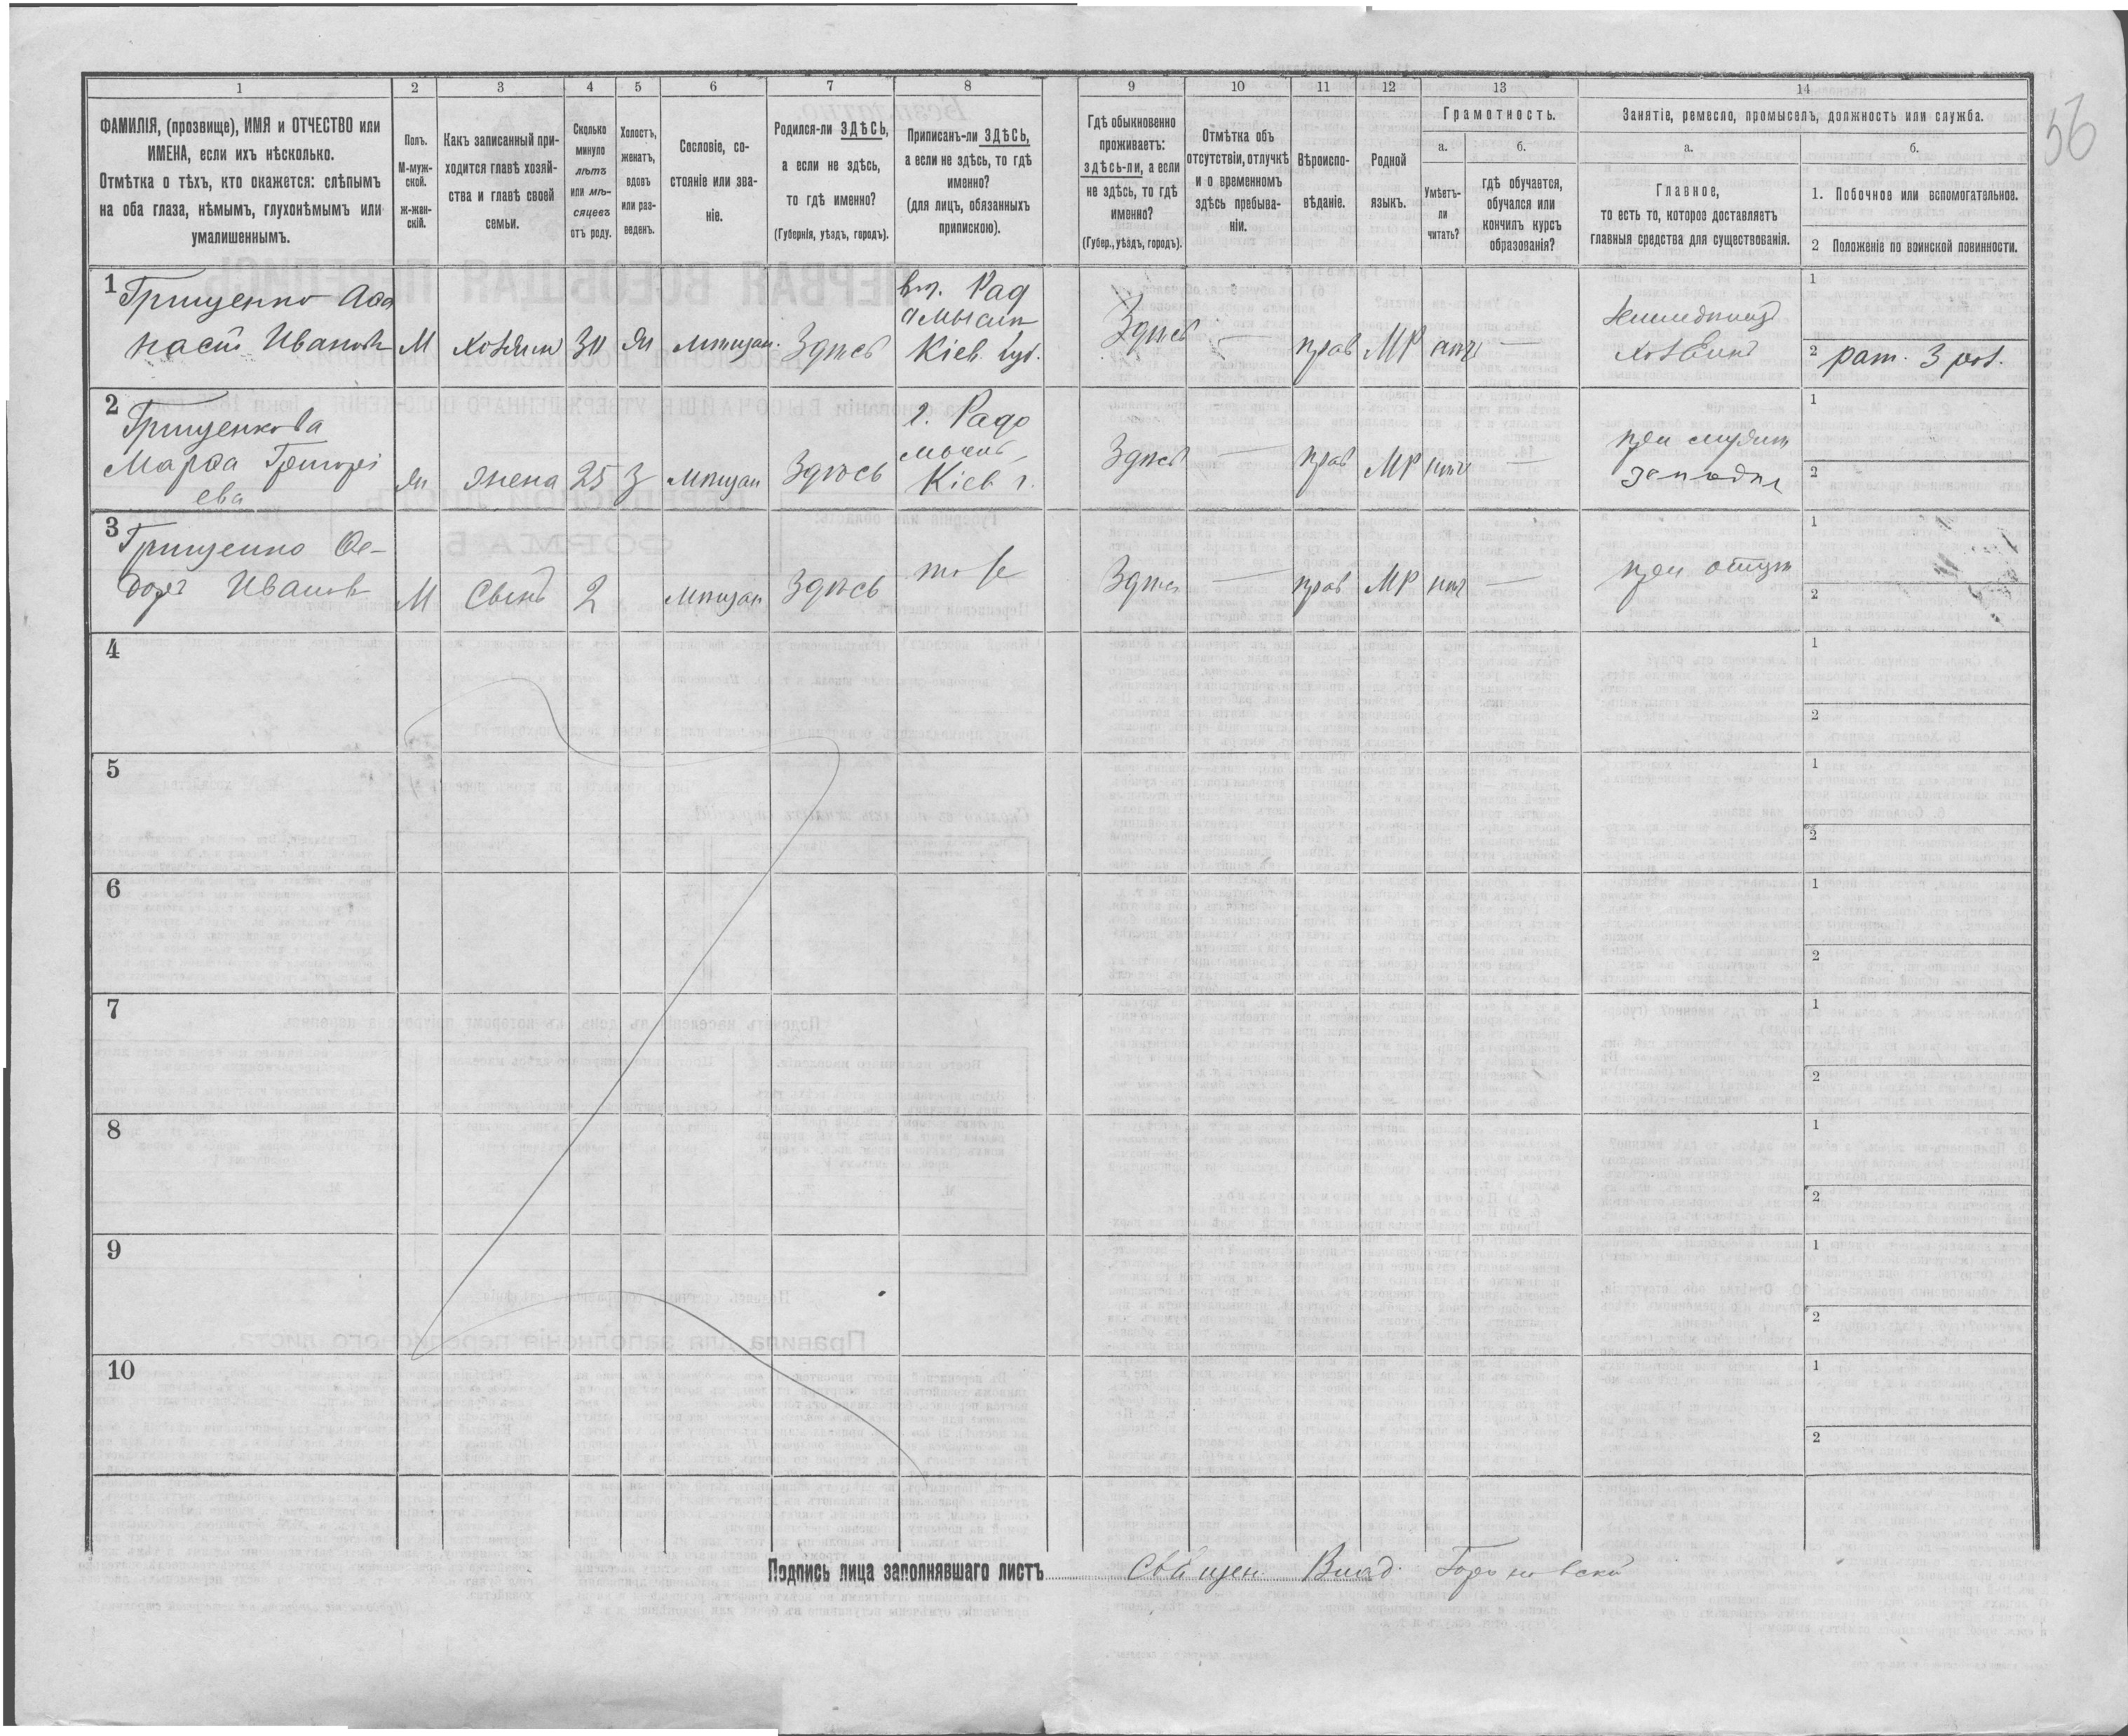 56
1 2 3 4 5 6 7 8 9 10 11 12 13 14
ФАМИЛІЯ, (прозвище), ИМЯ и ОТЧЕСТВО или
ИМЕНА, если ихъ нѣсколько.
Отмѣтка о тѣхъ, кто окажется: слѣпымъ
на оба глаза, нѣмымъ, глухонѣмымъ или
умалишеннымъ.
Полъ.
М-муж-
ской.
ж-жен-
скій.
Какъ записанный при-
ходится главѣ хозяй-
ства и главѣ своей
семьи.
Сколько
минуло
лѣтъ
или мѣ-
сяцевъ
отъ роду.
Холостъ,
женатъ,
вдовъ
или раз-
веденъ.
Сословіе, со-
стояніе или зва-
ніе.
Родился-ли ЗДѢСЬ,
а если не здѣсь,
то гдѣ именно?
(Губернія, уѣздъ, городъ).
Приписанъ-ли ЗДѢСЬ,
а если не здѣсь, то гдѣ
именно?
(для лицъ, обязанныхъ
припискою).
Гдѣ обыкновенно
проживаетъ:
здѣсь-ли, а если
не здѣсь, то гдѣ
именно?
(Губер., уѣздъ, городъ).
Отмѣтка объ
отсутствіи, отлучкѣ
и о временномъ
здѣсь пребыва-
ніи.
Вѣроиспо-
вѣданіе.
Родной
языкъ.
Грамотность.
а.
Умѣетъ-
ли
читать?
б.
гдѣ обучается,
обучался или
кончилъ курсъ
образованія?
Занятіе, ремесло, промыселъ, должность или служба.
а.
Главное,
то есть то, которое доставляетъ
главныя средства для существованія.
б.
1. Побочное или вспомогательное.
2 Положеніе по воинской повинности.
1 Грищенко Афа
насій Иванов М 30 мѣщан. Здѣсь
Кіев. губ.
Здѣсь — прав МР —
1
2 рат. 3 раз.
2 Грищенкова
Марфа Григорі
ева жена 25 З мѣщан Здѣсь
г. Радо
мысль
Кіев г.
Здѣсь — прав МР —
при
1
2
3 Грищенко Фе-
доръ Иванов М Сынъ 2 мѣщан Здѣсь
Здѣсь — прав МР —
при отцѣ
1
2
4 1
2
5 1
2
6 1
2
7 1
2
8 1
2
9 1
2
10 1
2
Подпись лица заполнявшаго листъ Священ. Влад.